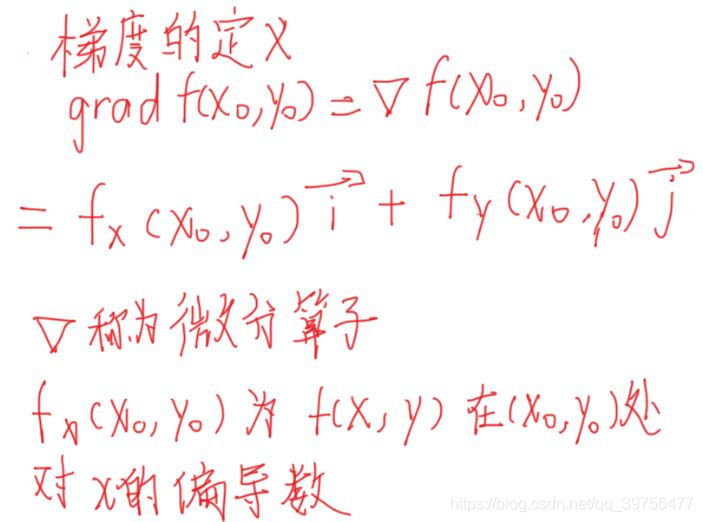 梯度的定义
grad f(x₀,y₀) = ∇ f(x₀,y₀)
= fₓ(x₀,y₀) i⃗ + f_y(x₀,y₀) j⃗
∇ 称为微分算子
fₓ(x₀,y₀) 为 f(x,y) 在(x₀,y₀)处
对 x的偏导数
https://blog.csdn.net/qq_39756477